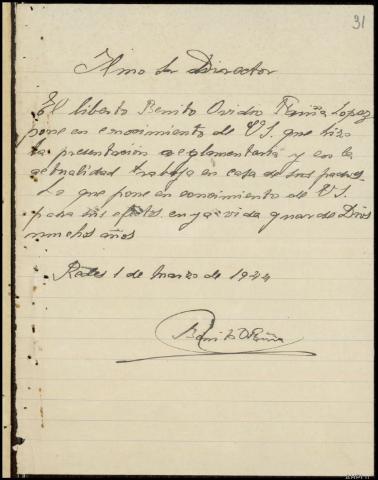 31
Ilmo Sr Director
El liberto Benito Ovidio Fariña Lopez
pone en conocimiento de VS. que hizo
la presentación reglamentaria y en la
actualidad trabaja en casa de sus padres.
Lo que pone en conocimiento de VS.
para sus efectos. cuya vida guarde Dios
muchos años
1 de Marzo de 1944
Benito O Fariña